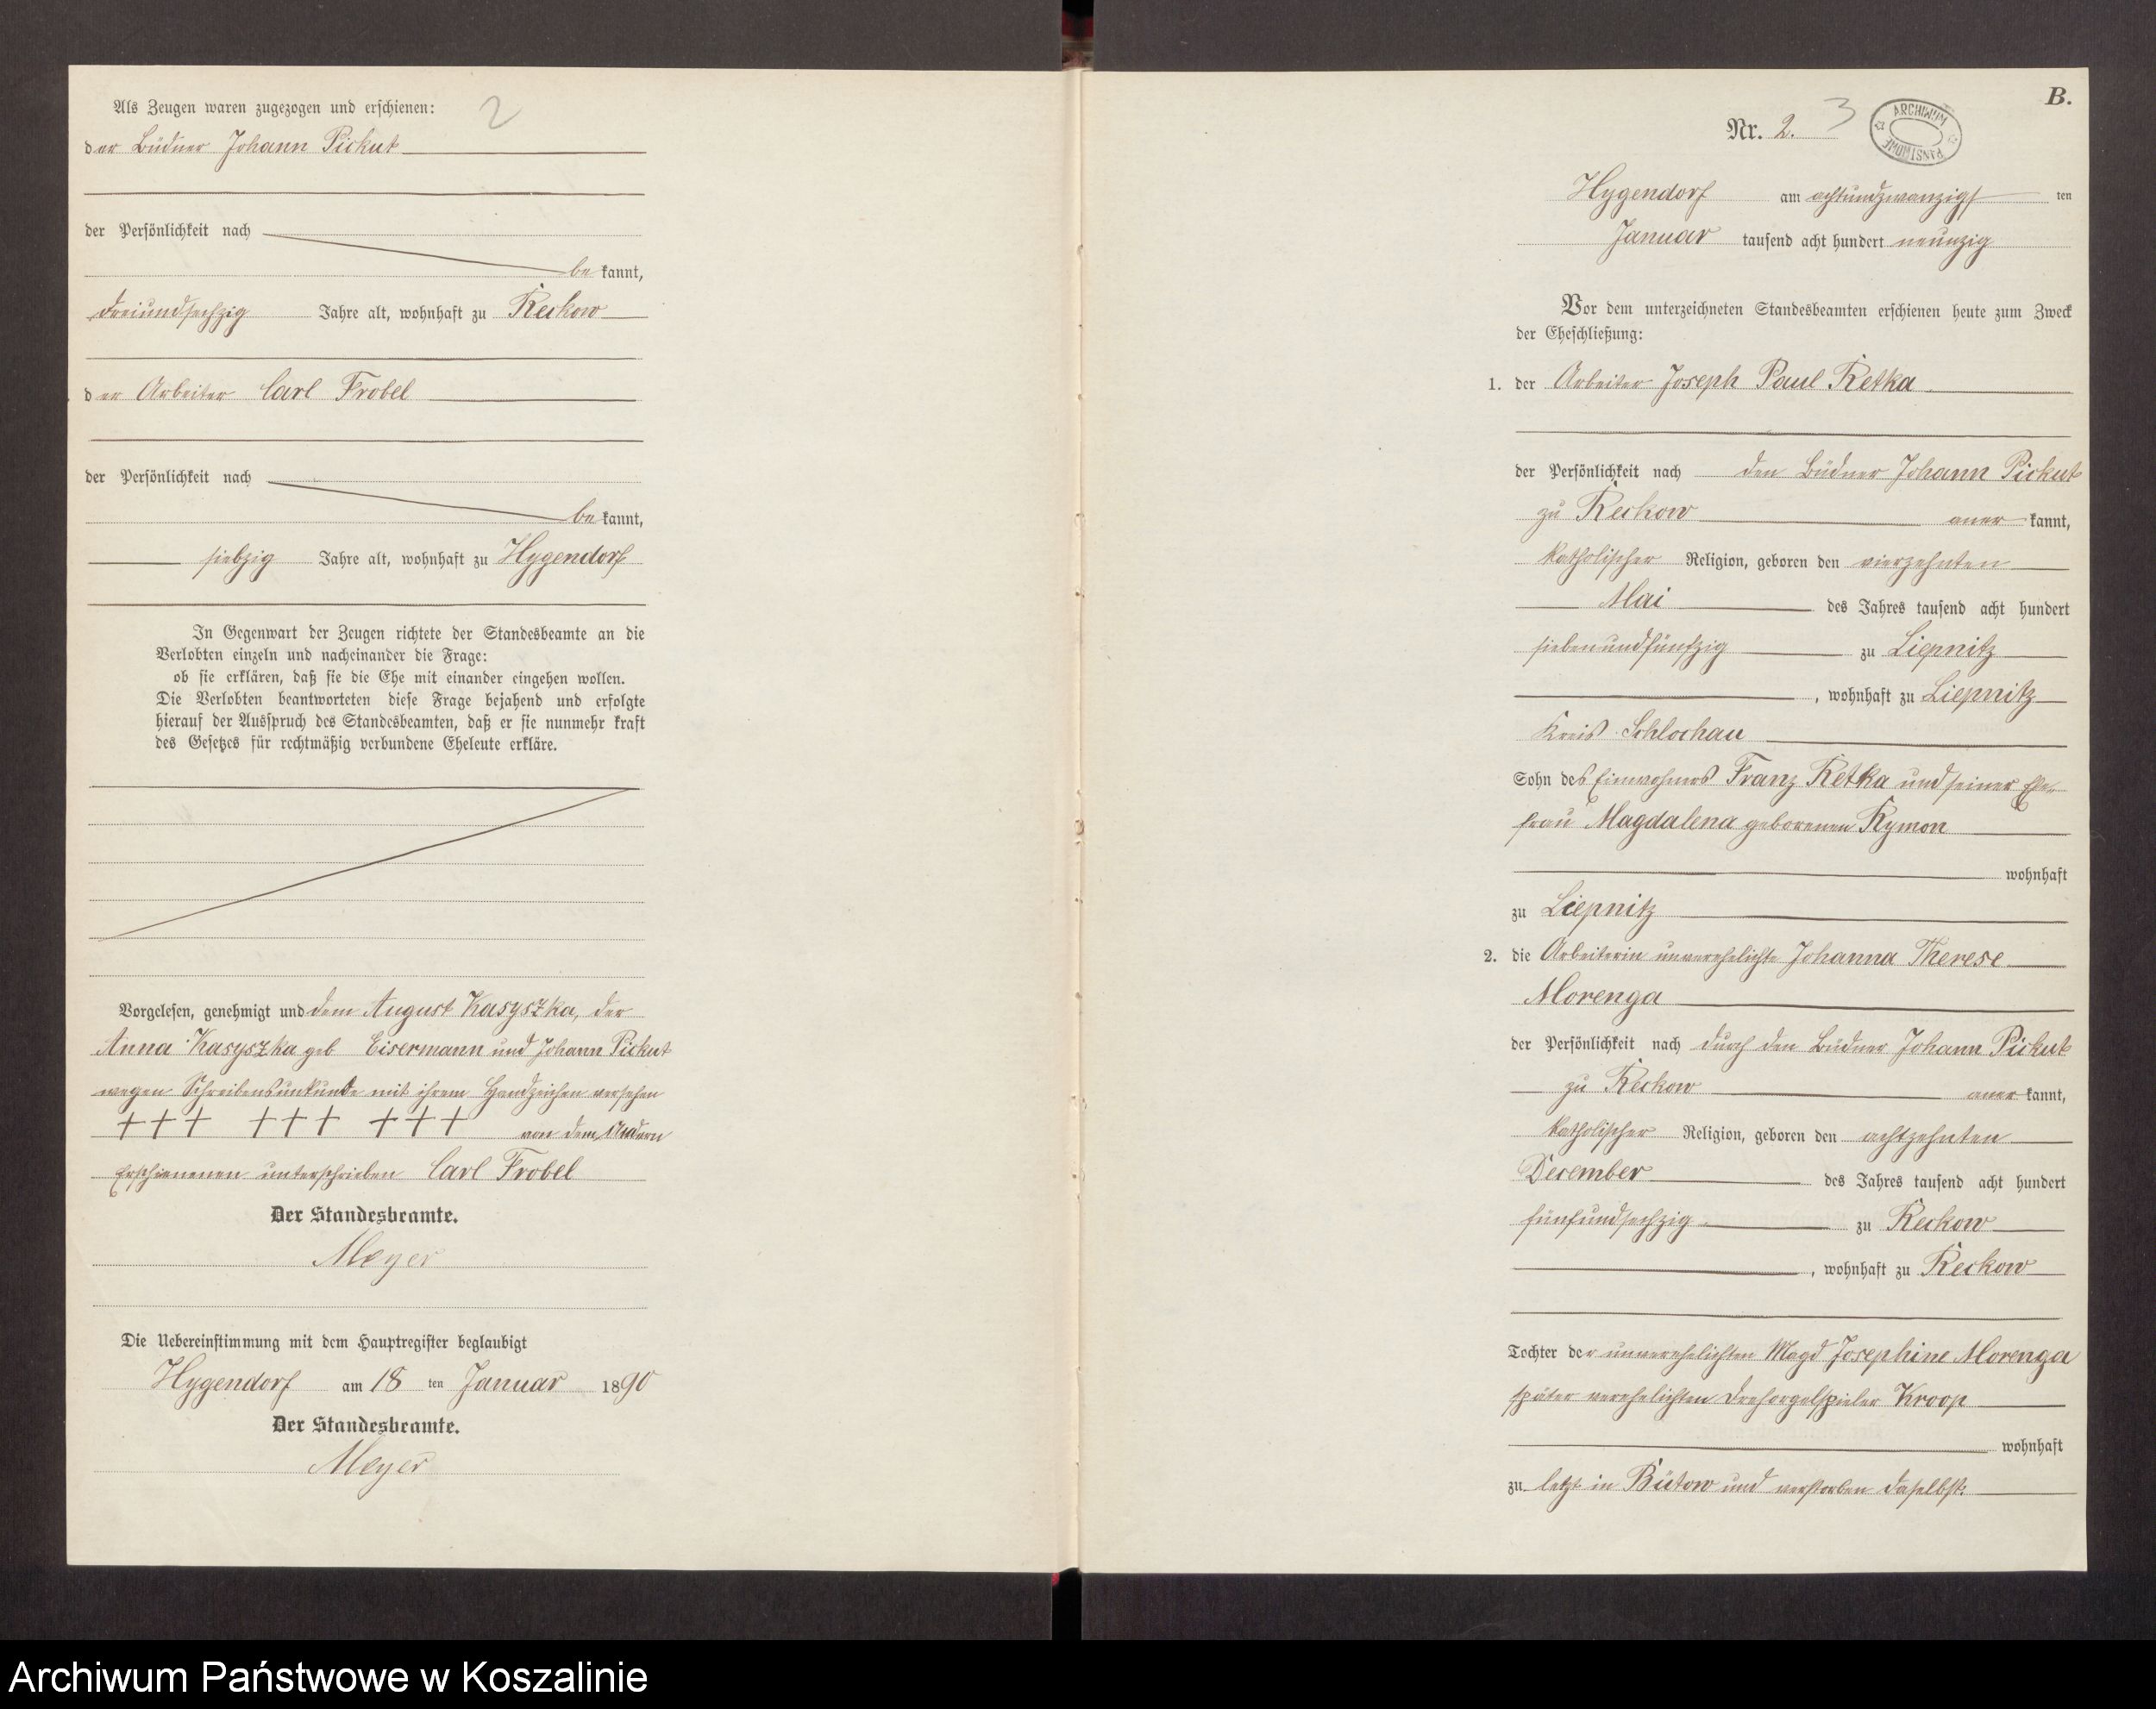 Als Zeugen waren zugezogen und erschienen:
2
der Büdner Johann Pickut
der Persönlichkeit nach
be kannt,
dreiundsechzig Jahre alt, wohnhaft zu Reckow
der Arbeiter Carl Frobel
der Persönlichkeit nach
be kannt,
siebzig Jahre alt, wohnhaft zu Hygendorf
In Gegenwart der Zeugen richtete der Standesbeamte an die
Verlobten einzeln und nacheinander die Frage:
ob sie erklären, daß sie die Ehe mit einander eingehen wollen.
Die Verlobten beantworteten diese Frage bejahend und erfolgte
hierauf der Ausspruch des Standesbeamten, daß er sie nunmehr kraft
des Gesetzes für rechtmäßig verbundene Eheleute erkläre.
Vorgelesen, genehmigt und dem August Kasyszka, der
Anna Kasyszka geb Eisermann und Johann Pickut
wegen Schreibensunkunde mit ihrem Handzeichen versehen
+++ +++ +++ von dem Andern
Erschienenen unterschrieben Carl Frobel
Der Standesbeamte.
Meyer
Die Uebereinstimmung mit dem Hauptregister beglaubigt
Hygendorf am 18 ten Januar 1890
Der Standesbeamte.
Meyer
B.
Nr. 2. 3
ARCHIWUM PAŃSTWOWE
Hygendorf am achtundzwanzigs ten
Januar tausend acht hundert neunzig
Vor dem unterzeichneten Standesbeamten erschienen heute zum Zweck
der Eheschließung:
1. der Arbeiter Joseph Paul Retka
der Persönlichkeit nach den Büdner Johann Pickut
zu Reckow aner kannt,
katholischer Religion, geboren den vierzehnten
Mai des Jahres tausend acht hundert
siebenundfünfzig zu Liepnitz
, wohnhaft zu Liepnitz
Kreis Schlochau
Sohn des Einwohners Franz Retka und seiner Ehe-
frau Magdalena geborenen Rymon
wohnhaft
zu Liepnitz
2. die Arbeiterin unverehelichte Johanna Therese
Morenga
der Persönlichkeit nach durch den Büdner Johann Pickut
zu Reckow aner kannt,
katholischer Religion, geboren den achtzehnten
December des Jahres tausend acht hundert
fünfundsechzig zu Reckow
, wohnhaft zu Reckow
Tochter der unverehelichten Magd Josephine Morenga
später verehelichten Drehorgelspieler Kroop
wohnhaft
zu letzt in Bütow und verstorben daselbst.
Archiwum Państwowe w Koszalinie